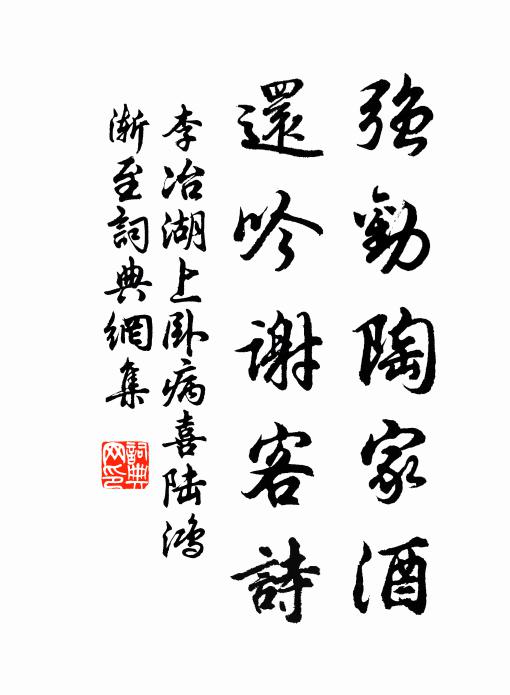 强勸陶家酒
還吟謝客詩
李冶湖上卧病喜陆鴻
漸至詞典網集
詞典
网印